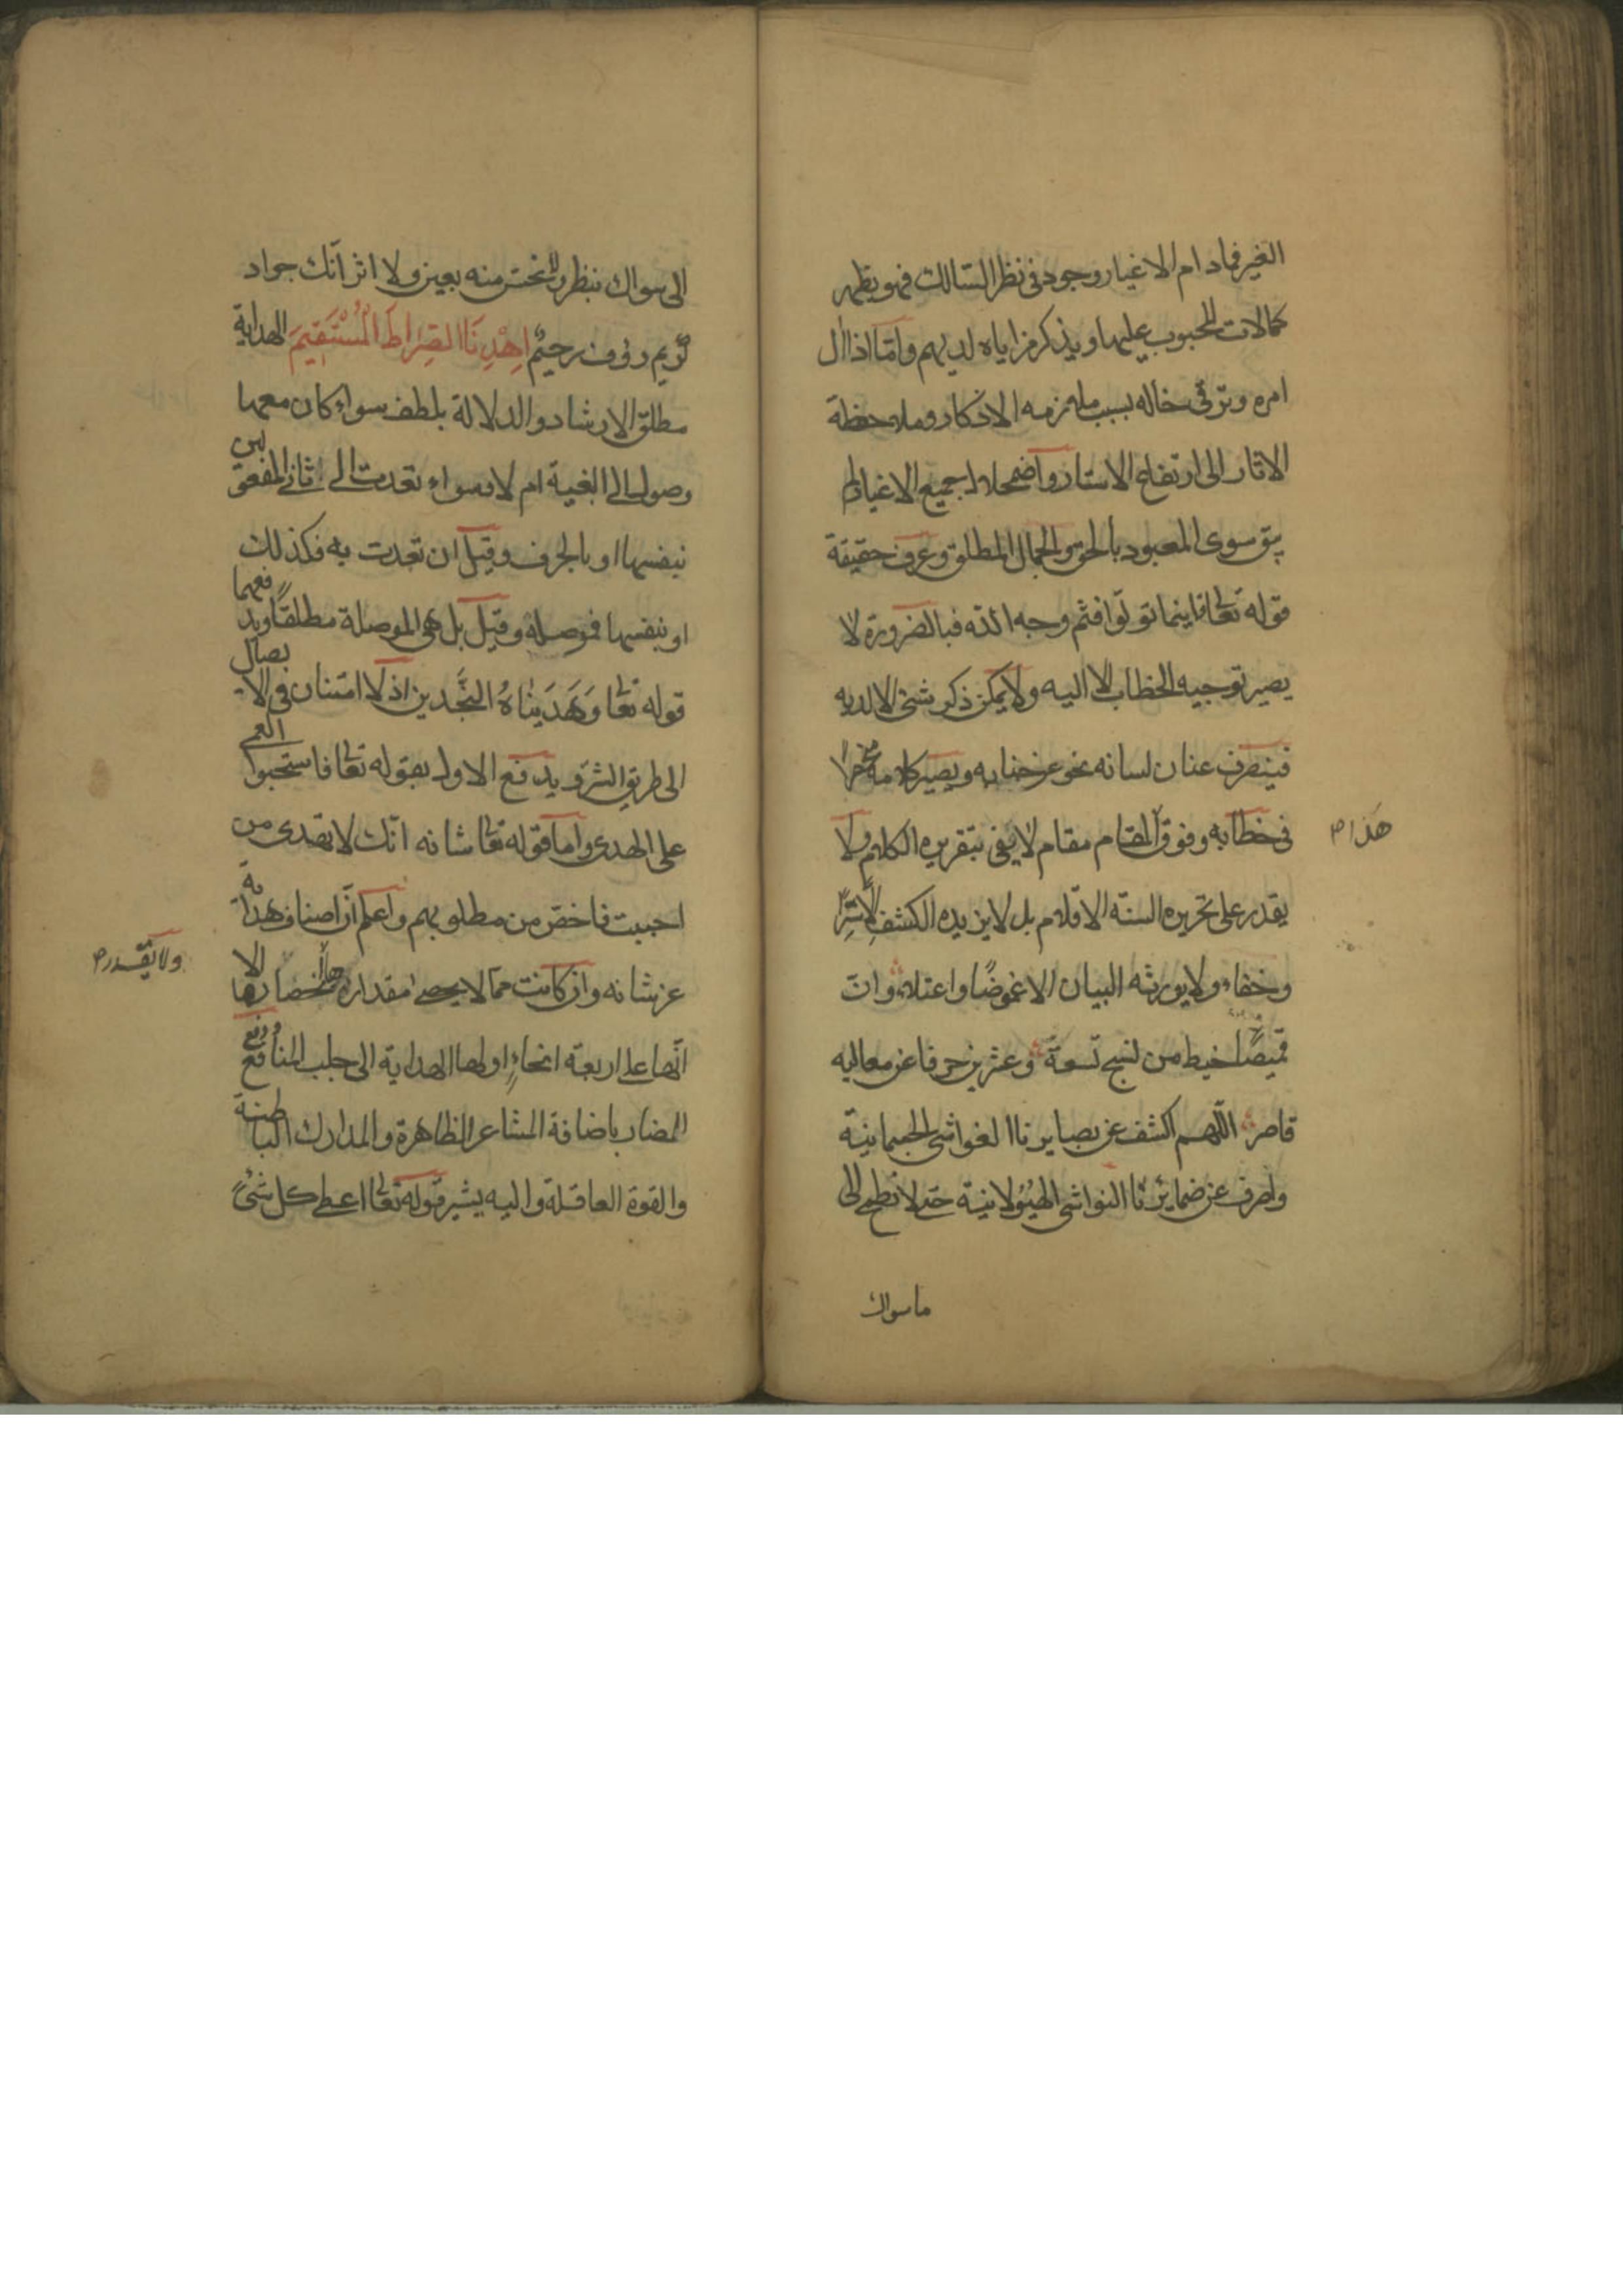 الغير فمادام الاغيار وجود فى نظر السالك فهو يظهر
كمالات المحبوب عليها ويذكر مزاياه لديهم واما اذا ال
امره وترقى حاله بسبب ملازمه الاذكار وملاحظة
الاثار الى ارتفاع الاستار واضمحلال جميع الاغيار لم
يبق سوى المعبود بالحق والجمال المطلق وعرف حقيقة
قوله تعالى فاينما تولوا فثم وجه الله فبالضرورة لا
يصير توجيه الخطاب الا اليه ولا يمكن ذكر شئ الا لديه
فينصرف عنان لسانه نحو عز جنابه ويصير كلامه منحصرا
فى خطابه وفوق المقام مقام لا يفى بتقريره الكلام ولا
هذا صح
يقدر على تحريره السنة الاقلام بل لا يزيده الكشف الا سترا
وخفاء ولا يورثه البيان الا غموضا واعتلاء وان
قميصا خيط من نسج تسعة وعشرين حرفا عن معاليه
قاصر اللهم اكشف عن بصايرنا الغواشى الجسمانية
واصرف عن ضمايرنا النواشى الهيولانية حتى لا نطمح الى
ما سواك
الى سواك بنظر ولا نحس منه بعين ولا اثر انك جواد
كريم رؤف رحيم اِهْدِنَا الصِّرَاطَ الْمُسْتَقِيمَ الهداية
مطلق الارشاد والدلالة بلطف سواء كان معها
وصول الى البغية ام لا وسواء تعدت الى ثانى المفعولين
بنفسها او بالحرف وقيل ان تعدت به فكذلك
او بنفسها فموصلة وقيل بل هى الموصلة مطلقا ويدفعهما
قوله تعالى وَهَدَيْنَاهُ النَّجْدين اذ لا امتنان فى الايصال
الى طريق الشر ويدفع الاول بقوله تعالى فاستحبوا العمى
على الهدى واما قوله تعالى شانه انك لا تهدى من
احببت فاخص من مطلوبهم واعلم ان اصناف هداية
عز شانه وان كانت مما لا يحصى مقدارها انحصارها الا
ولا يقدر صح
انها على اربعة انحاء اولها الهداية الى جلب المنافع ودفع
المضار باضافة المشاعر الظاهرة والمدارك الباطنة
والقوة العاقلة واليه يشير قوله تعالى اعطى كل شئ